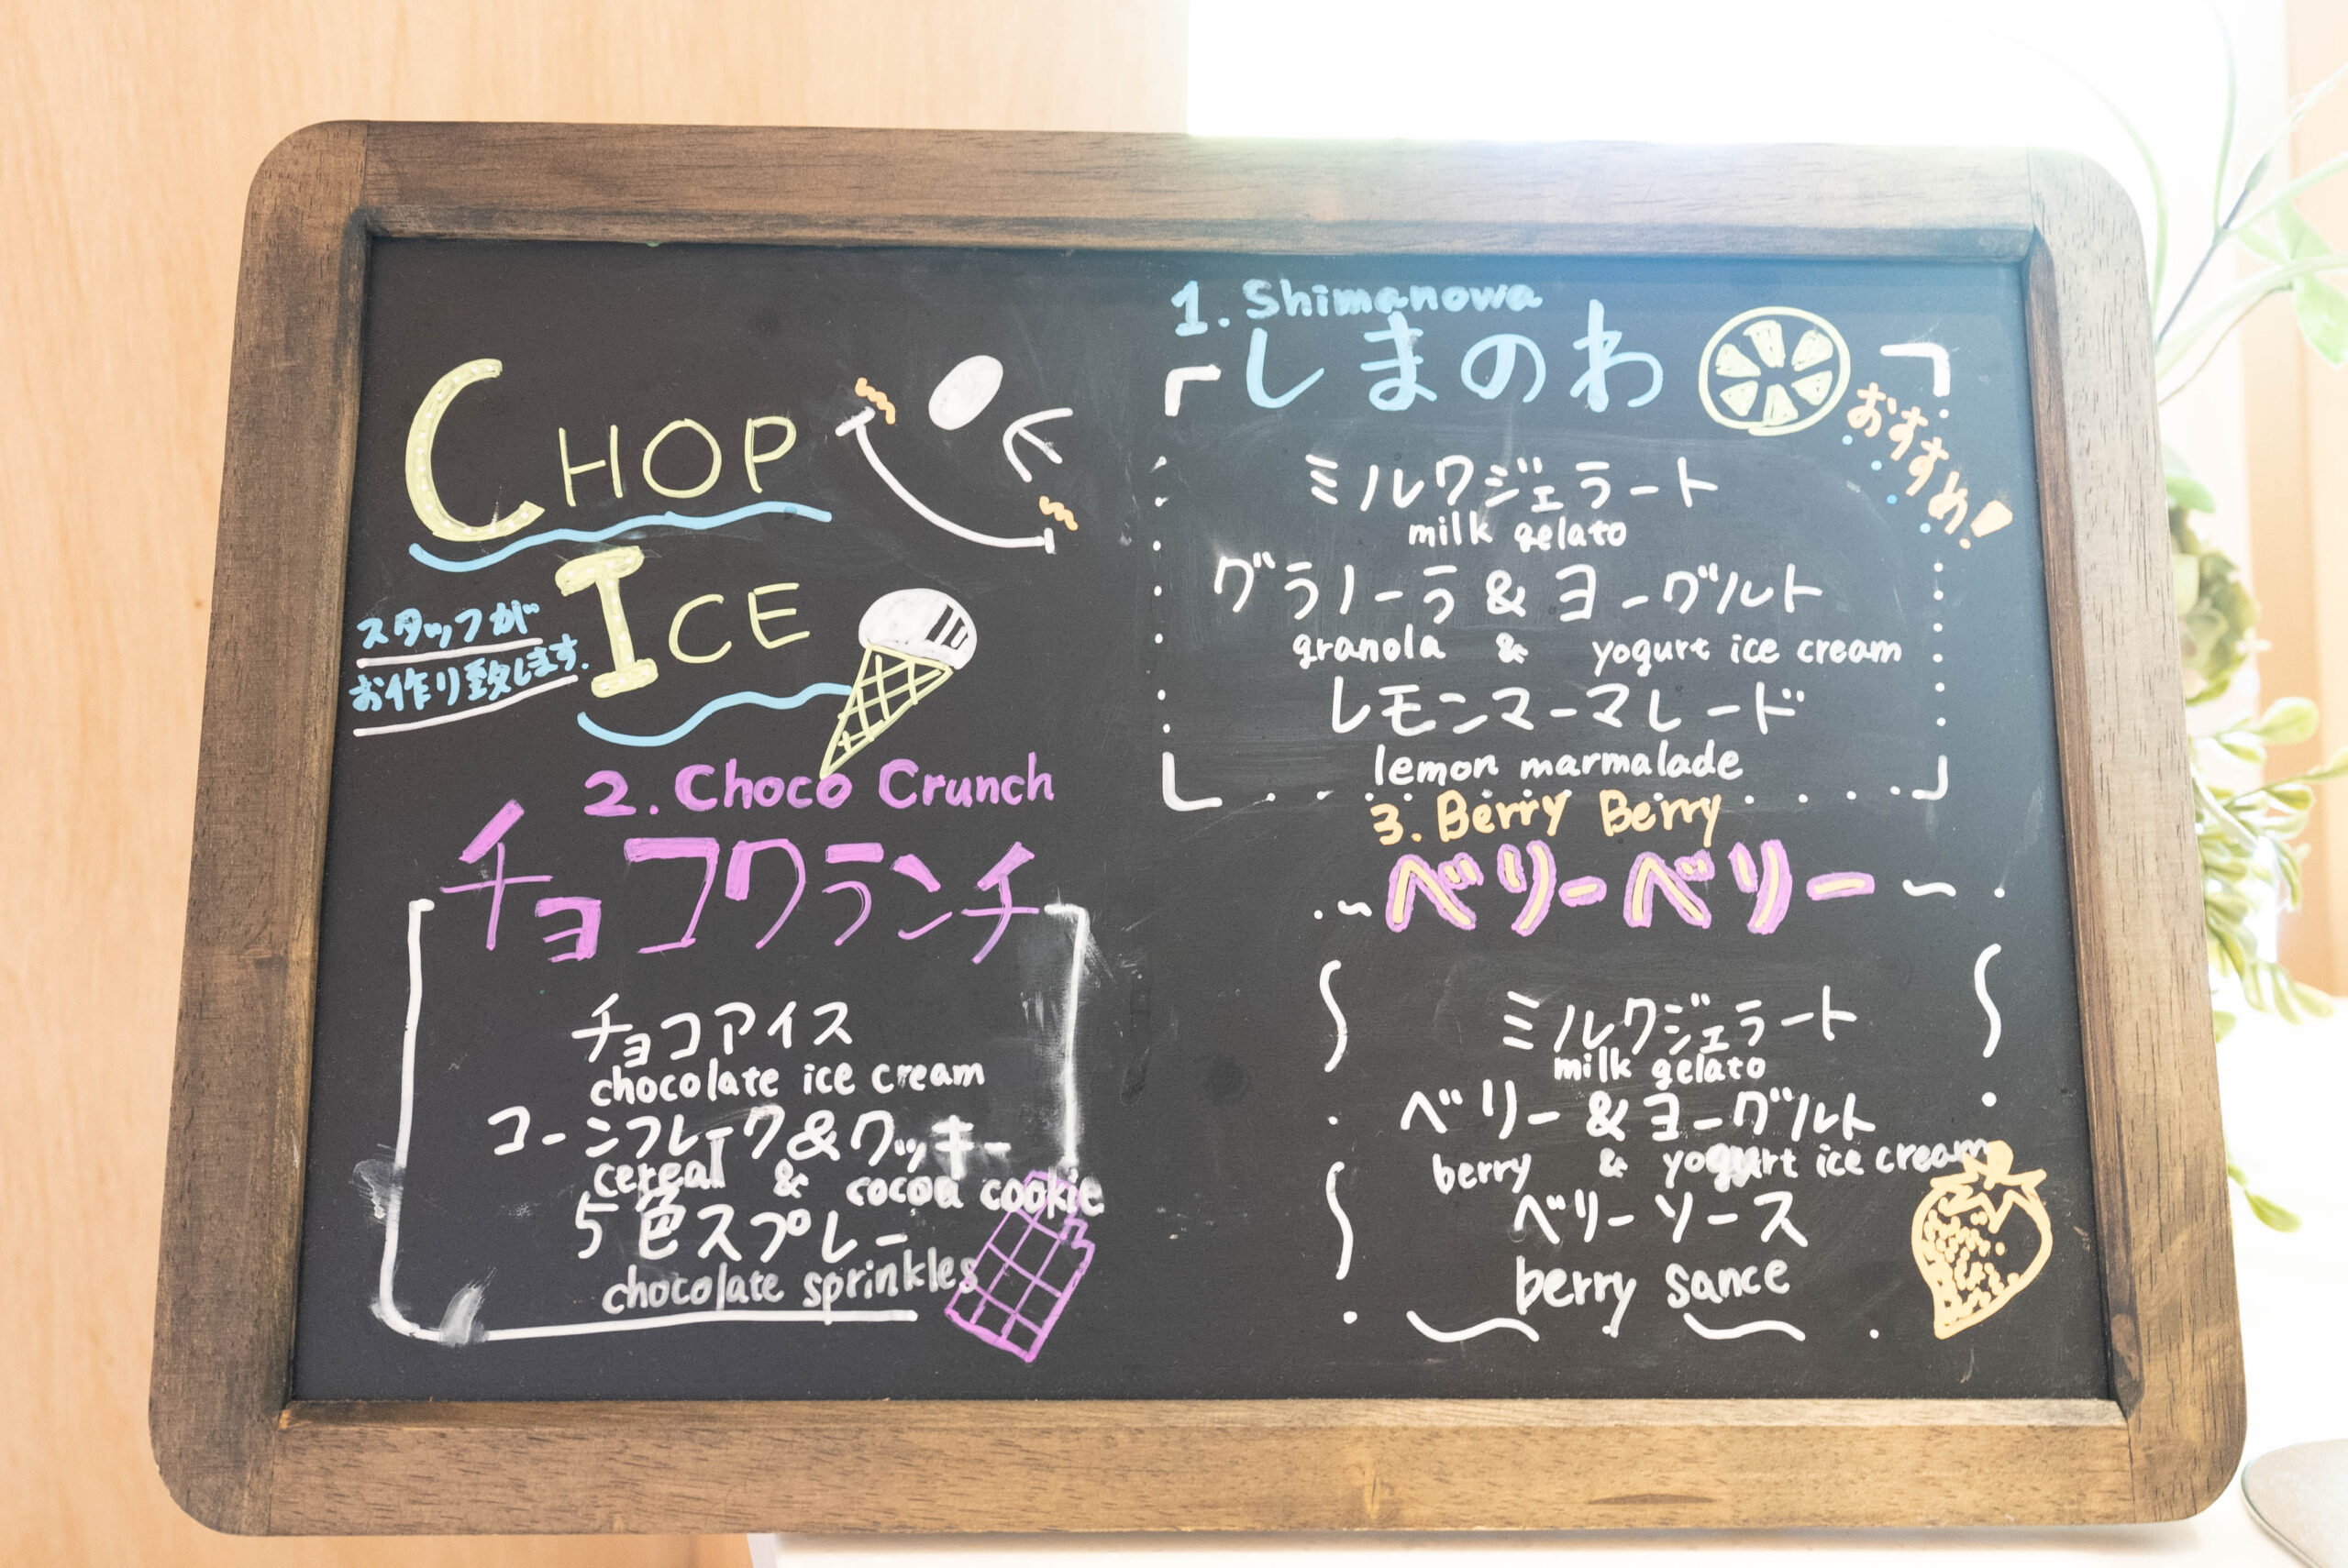 CHOP
ICE
スタッフが
お作り致します.
1. Shimanowa
しまのわ
おすすめ!
ミルクジェラート
milk gelato
グラノーラ & ヨーグルト
granola & yogurt ice cream
レモンマーマレード
lemon marmalade
2. Choco Crunch
チョコクランチ
チョコアイス
chocolate ice cream
コーンフレーク&クッキー
cereal & cocoa cookie
5色スプレー
chocolate sprinkles
3. Berry Berry
ベリーベリー
ミルクジェラート
milk gelato
ベリー & ヨーグルト
berry & yogurt ice cream
ベリーソース
berry sance